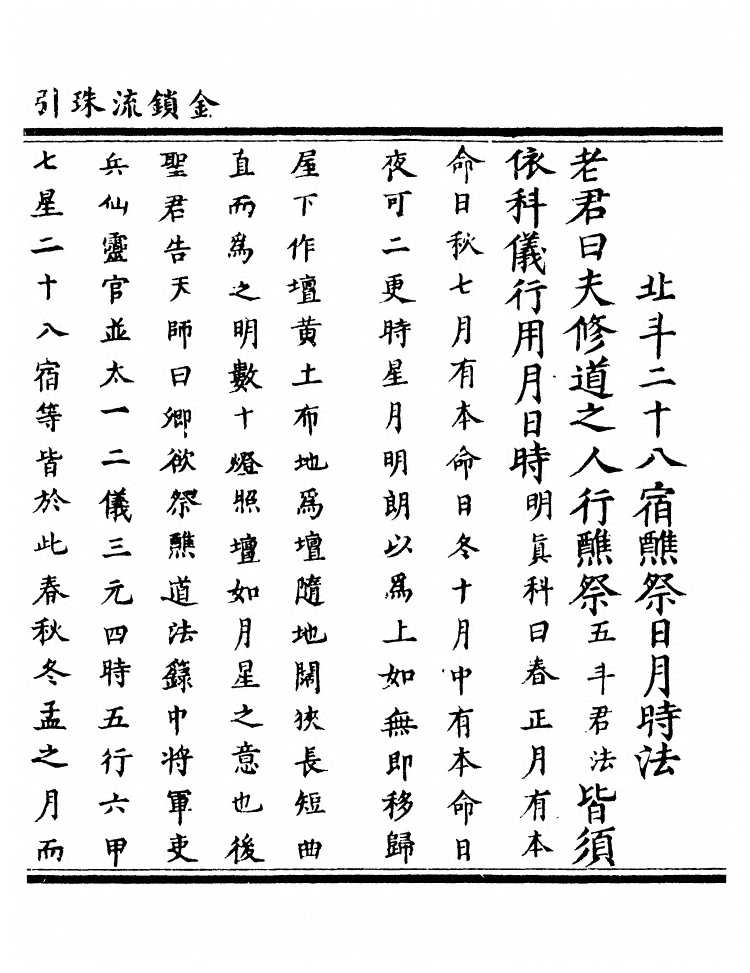 金鎖流珠引
北斗二十八宿醮祭日月時法
老君曰夫修道之人行醮祭五斗君法皆須
依科儀行用月日時明真科曰春正月有本
命日秋七月有本命日冬十月中有本命日
夜可二更時星月明朗以為上如無即移歸
屋下作壇黃土布地為壇隨地闊狹長短曲
直而為之明數十燈照壇如月星之意也後
聖君告天師曰卿欲祭醮道法籙中將軍吏
兵仙靈官並太一二儀三元四時五行六甲
七星二十八宿等皆於此春秋冬孟之月而